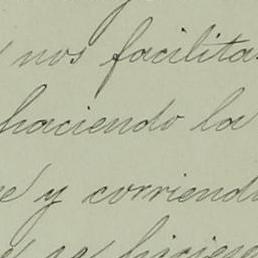 nos facilita
haciendo la
e y corriendo